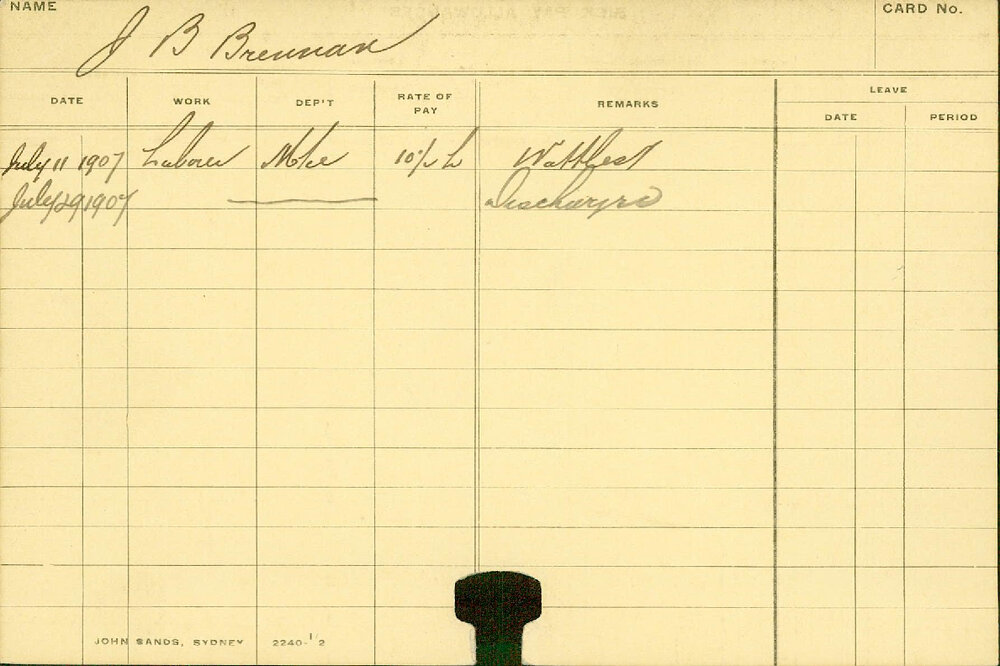 NAME
CARD No.
J B Brennan
DATE WORK DEP'T RATE OF PAY REMARKS LEAVE
DATE PERIOD
July 11 1907 Laborer 10½ h
July 29 1907 Discharged
JOHN SANDS, SYDNEY 2240-½